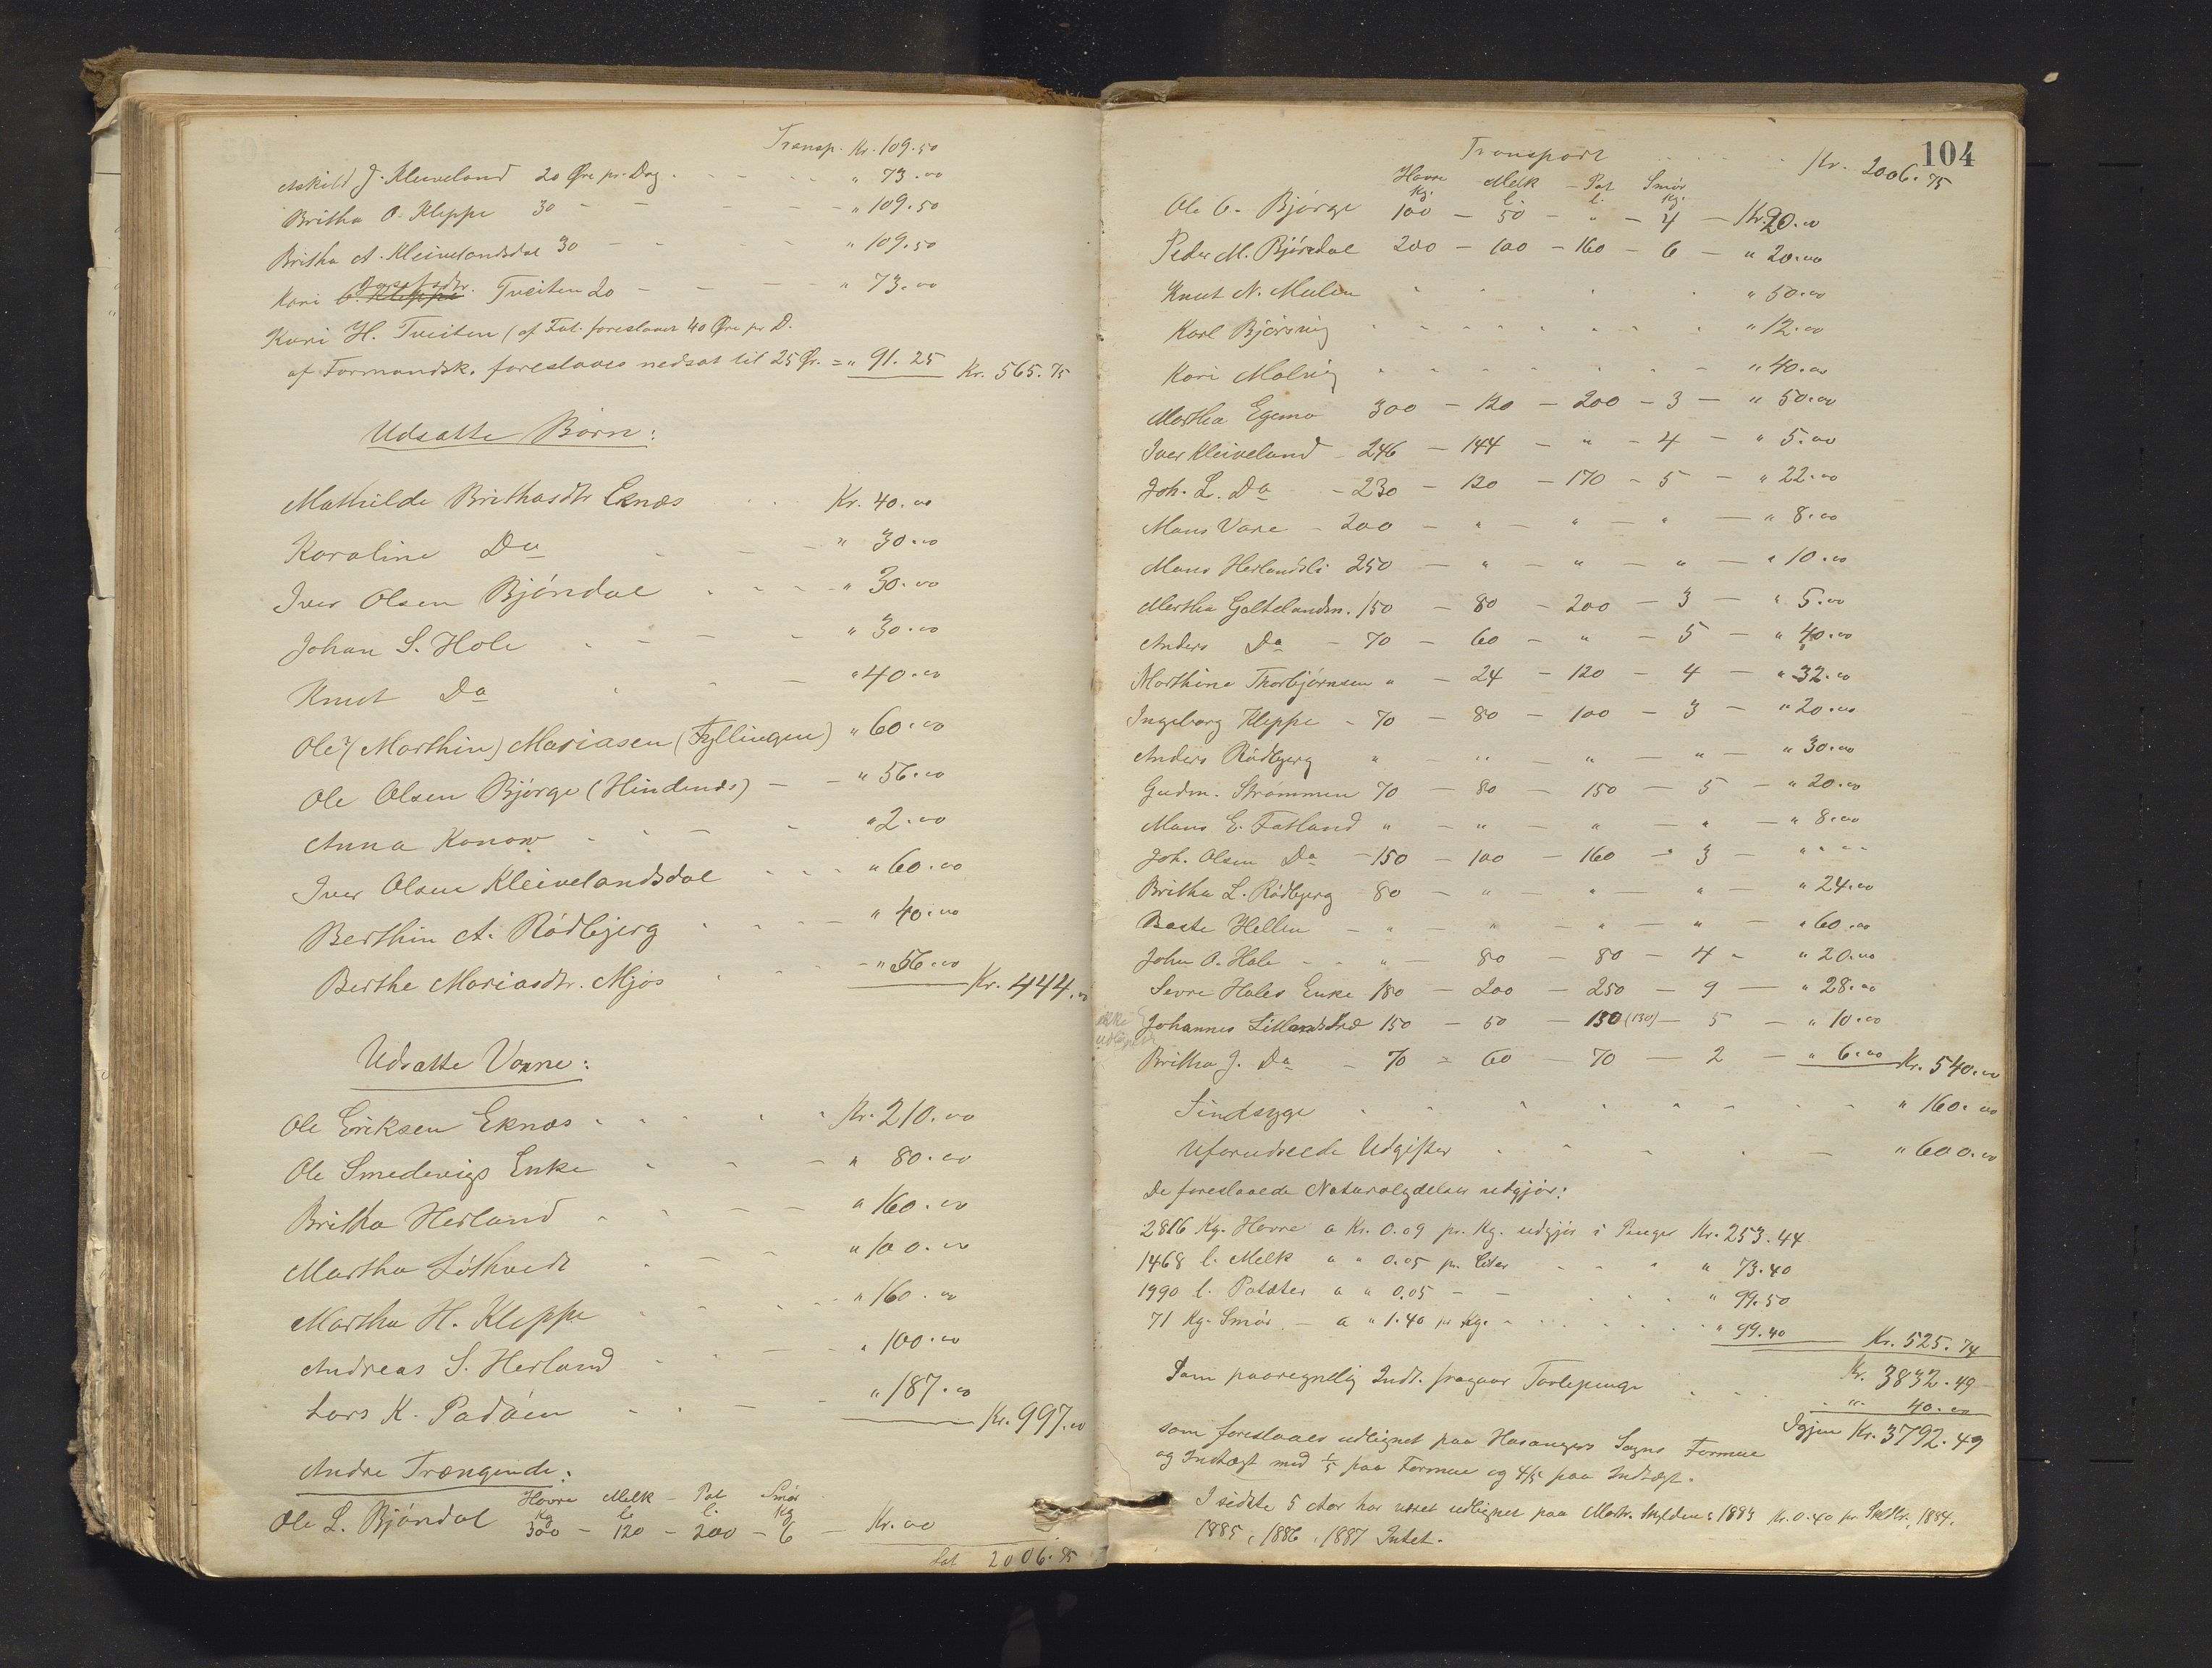 Transp. Kr. 109.50
Askild J. Kleiveland 20 Øre pr. Dag . - - - - " 73.00
Britha O. Kleppe 30 - - - - - " 109.50
Britha A. Kleivelandsdal 30 - - - " 109.50
Kari Tveiten 20 - - - - " 73.00
Kari H. Tveiten (af Fat. foreslaaet 40 Øre pr D.
af Formandsk. foreslaaes nedsat til 25 Ør. = " 91.25 Kr. 565.75
Udsatte Børn:
Mathilde Brithasdtr Eknæs . . Kr. 40.00
Karoline Do - - - " 30.00
Iver Olsen Bjöndal . - - - " 30.00
Johan S. Hole . - - - " 30.00
Knut Do . - - " 40.00
Ole (Marthin) Mariasen (Fyllingen) " 60.00
Ole Olsen Bjørge (Hindenæs) - - " 56.00
Anna Konow . - - - " 2.00
Iver Olsen Kleivelandsdal - - - " 60.00
Berthin A. Rödbjerg . - - - " 40.00
Berthe Mariasdtr. Mjøs . - - - " 56.00 Kr. 444.00
Udsatte Voxne:
Ole Eriksen Eknæs - - - - - Kr. 210.00
Ole Smedevigs Enke - - - " 80.00
Britha Herland - - - - " 160.00
Martha Löthvedt . - - " 100.00
Martha H. Kleppe . - - - " 160.00
Andreas S. Herland - - - - " 100.00
Lars K. Padöen - - - - " 187.00 Kr. 997.00
Andre Trængende:
Havre Melk - Pot Smør
Kg l. l. Kg
Ole L. Bjöndal 300 - 120 - 200 - 6 - Kr. 00
Lat 2006.75
104
Transport . . . . . Kr. 2006.75
Havre Melk - Pot Smør
Kg. l. l. Kg.
Ole O. Bjørge 100 - 50 - " - 4 - Kr. 20.00
Peder M. Bjöndal 200 - 100 - 160 - 6 - " 20.00
Knut N. Mulen - - - - " 50.00
Karl Bjørsvig - - - - - - - - " 12.00
Kari Molvig - - - - - - - - " 40.00
Martha Egemo 300 - 120 - 200 - 3 - " 50.00
Iver Kleiveland - 246 - 144 - " - 4 - " 5.00
Joh. L. Do - 230 - 120 - 170 - 5 - " 22.00
Mons Vare - 200 - " - " - " - " 8.00
Mons Herlandsli 250 - " - " - " - " 10.00
Martha Galtelandsn. 150 - 80 - 200 - 3 - " 5.00
Anders Do - 70 - 60 - " - 5 - " 40.00
Marthine Thorbjørnsen " - 24 - 120 - 4 - " 32.00
Ingeborg Kleppe - 70 - 80 - 100 - 3 - " 20.00
Anders Rödbjerg " - " - " - " - " 30.00
Gudm. Strömmen 70 - 80 - 150 - 5 - " 20.00
Mons E. Fatland " - " - " - " - " 8.00
Joh. Olsen Do - 150 - 100 - 160 - 3 - " " - -
Britha L. Rödbjerg - 80 - " - " - " - " 24.00
Baste Hellen - " - " - " - " - " 60.00
John O. Hole - - " - 80 - 80 - 4 - " 20.00
Sevre Holes Enke 180 - 200 - 250 - 9 - " 28.00
ikke
Johannes 150 - 50 - 130 (130) - 5 - " 10.00
Britha J. Do - 70 - 60 - 70 - 2 - " 6.00 Kr. 540.00
Sindsyge - - - - - - - - " 160.00
Uforudseede Udgifter - - - - - " 600.00
De foreslaaede Naturalydelser udgjör:
2816 Kg. Havre a Kr. 0.09 pr. Kg. udgjör i Penger Kr. 253.44
1468 l. Melk a " 0.05 pr. Liter - - - " 73.40
1990 l. Potæter a " 0.05 - - - - - " 99.50
71 Kg. Smör - a " 1.40 pr Kg. - - - - - - " 99.40 Kr. 525.74
Kr. 3832.49
Som paaregnelig Indt. fragaar Torlepenge . - - " 40.00
Igjen Kr. 3792.49
som foreslaaes udlignet paa Hosangers Sogns Formue
og Indtægt med 1/5 paa Formue og 4/5 paa Indtægt.
I sidste 5 Aar har været udlignet paa Matr. Skylden: 1883 Kr. 0.40 pr Skdlr., 1884,
1885, 1886, 1887 Intet.